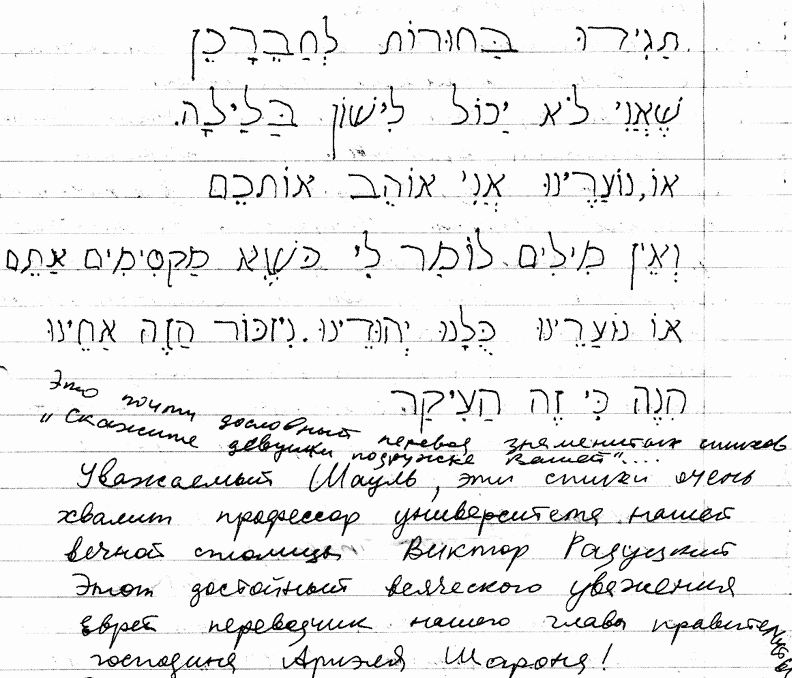 תַּגִידוּ בַּחוּרוֹת לְחַבֵרָכֵן
שֶׁאֲנִי לֹא יָכוֹל לִישׁוֹן בַּלַיְלָה.
אוֹ, נוֹעָרֵינוּ אֲנִי אוֹהֵב אוֹתכֶם
וְאֵין מִילִים לוֹמַר לִי מַקסִימִים אַתֵם
אוֹ נוֹעָרֵינוּ כֻּלָנוּ יְהוּדֵינוּ. נִיזכּוֹר הַזֶה אַחֵינוּ
הִנֶה כִּי זֶה הָעִיקָר
Это почти дословный перевод знаменитых стихов
"Скажите девушки подружке вашей"....
Уважаемый Шауль, эти стихи очень
хвалит профессор университета нашей
вечной столицы Виктор Радуцкий
Этот достойный всяческого уважения
еврей переводчик нашего главы
господина Ариэля Шарона!